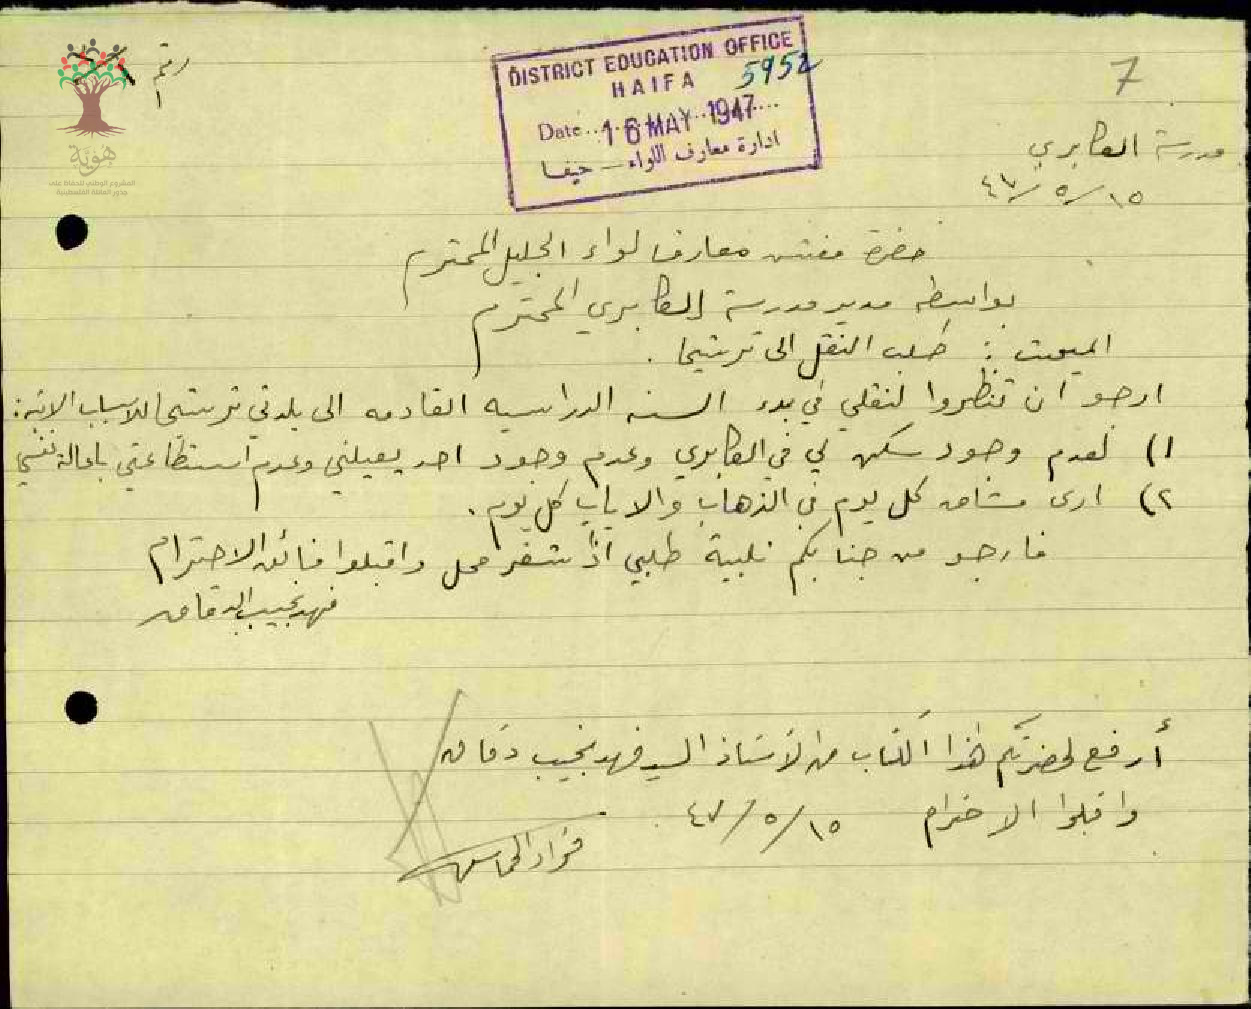 رقم
DISTRICT EDUCATION OFFICE
HAIFA 5952
Date 16 MAY 1947
ادارة معارف اللواء – حيفا
7
هوية
المشروع الوطني للحفاظ على
جذور العائلة الفلسطينية
مدرسة الكابري
١٥/٥/٤٧
حضرة مفتش معارف لواء الجليل المحترم
بواسطة مدير مدرسة الكابري المحترم
المبحث : طلب النقل الى ترشيحا .
ارجو ان تنظروا لنقلي في بدء السنه الدراسيه القادمه الى بلدتي ترشيحا للاسباب الاتيه :
١) لعدم وجود سكن لي في الكابري وعدم وجود احد يعيلني وعدم استطاعتي باعالة نفسي
٢) ارى مشاق كل يوم في الذهاب والاياب كل يوم .
فارجو من جنابكم تلبية طلبي اذا شغر محل واقبلوا فائق الاحترام
فهد نجيب الدقاق
أرفع لحضرتكم هذا الكتاب من الأستاذ السيد فهد نجيب دقاق
واقبلوا الاحترام ١٥/٥/٤٧
فؤاد